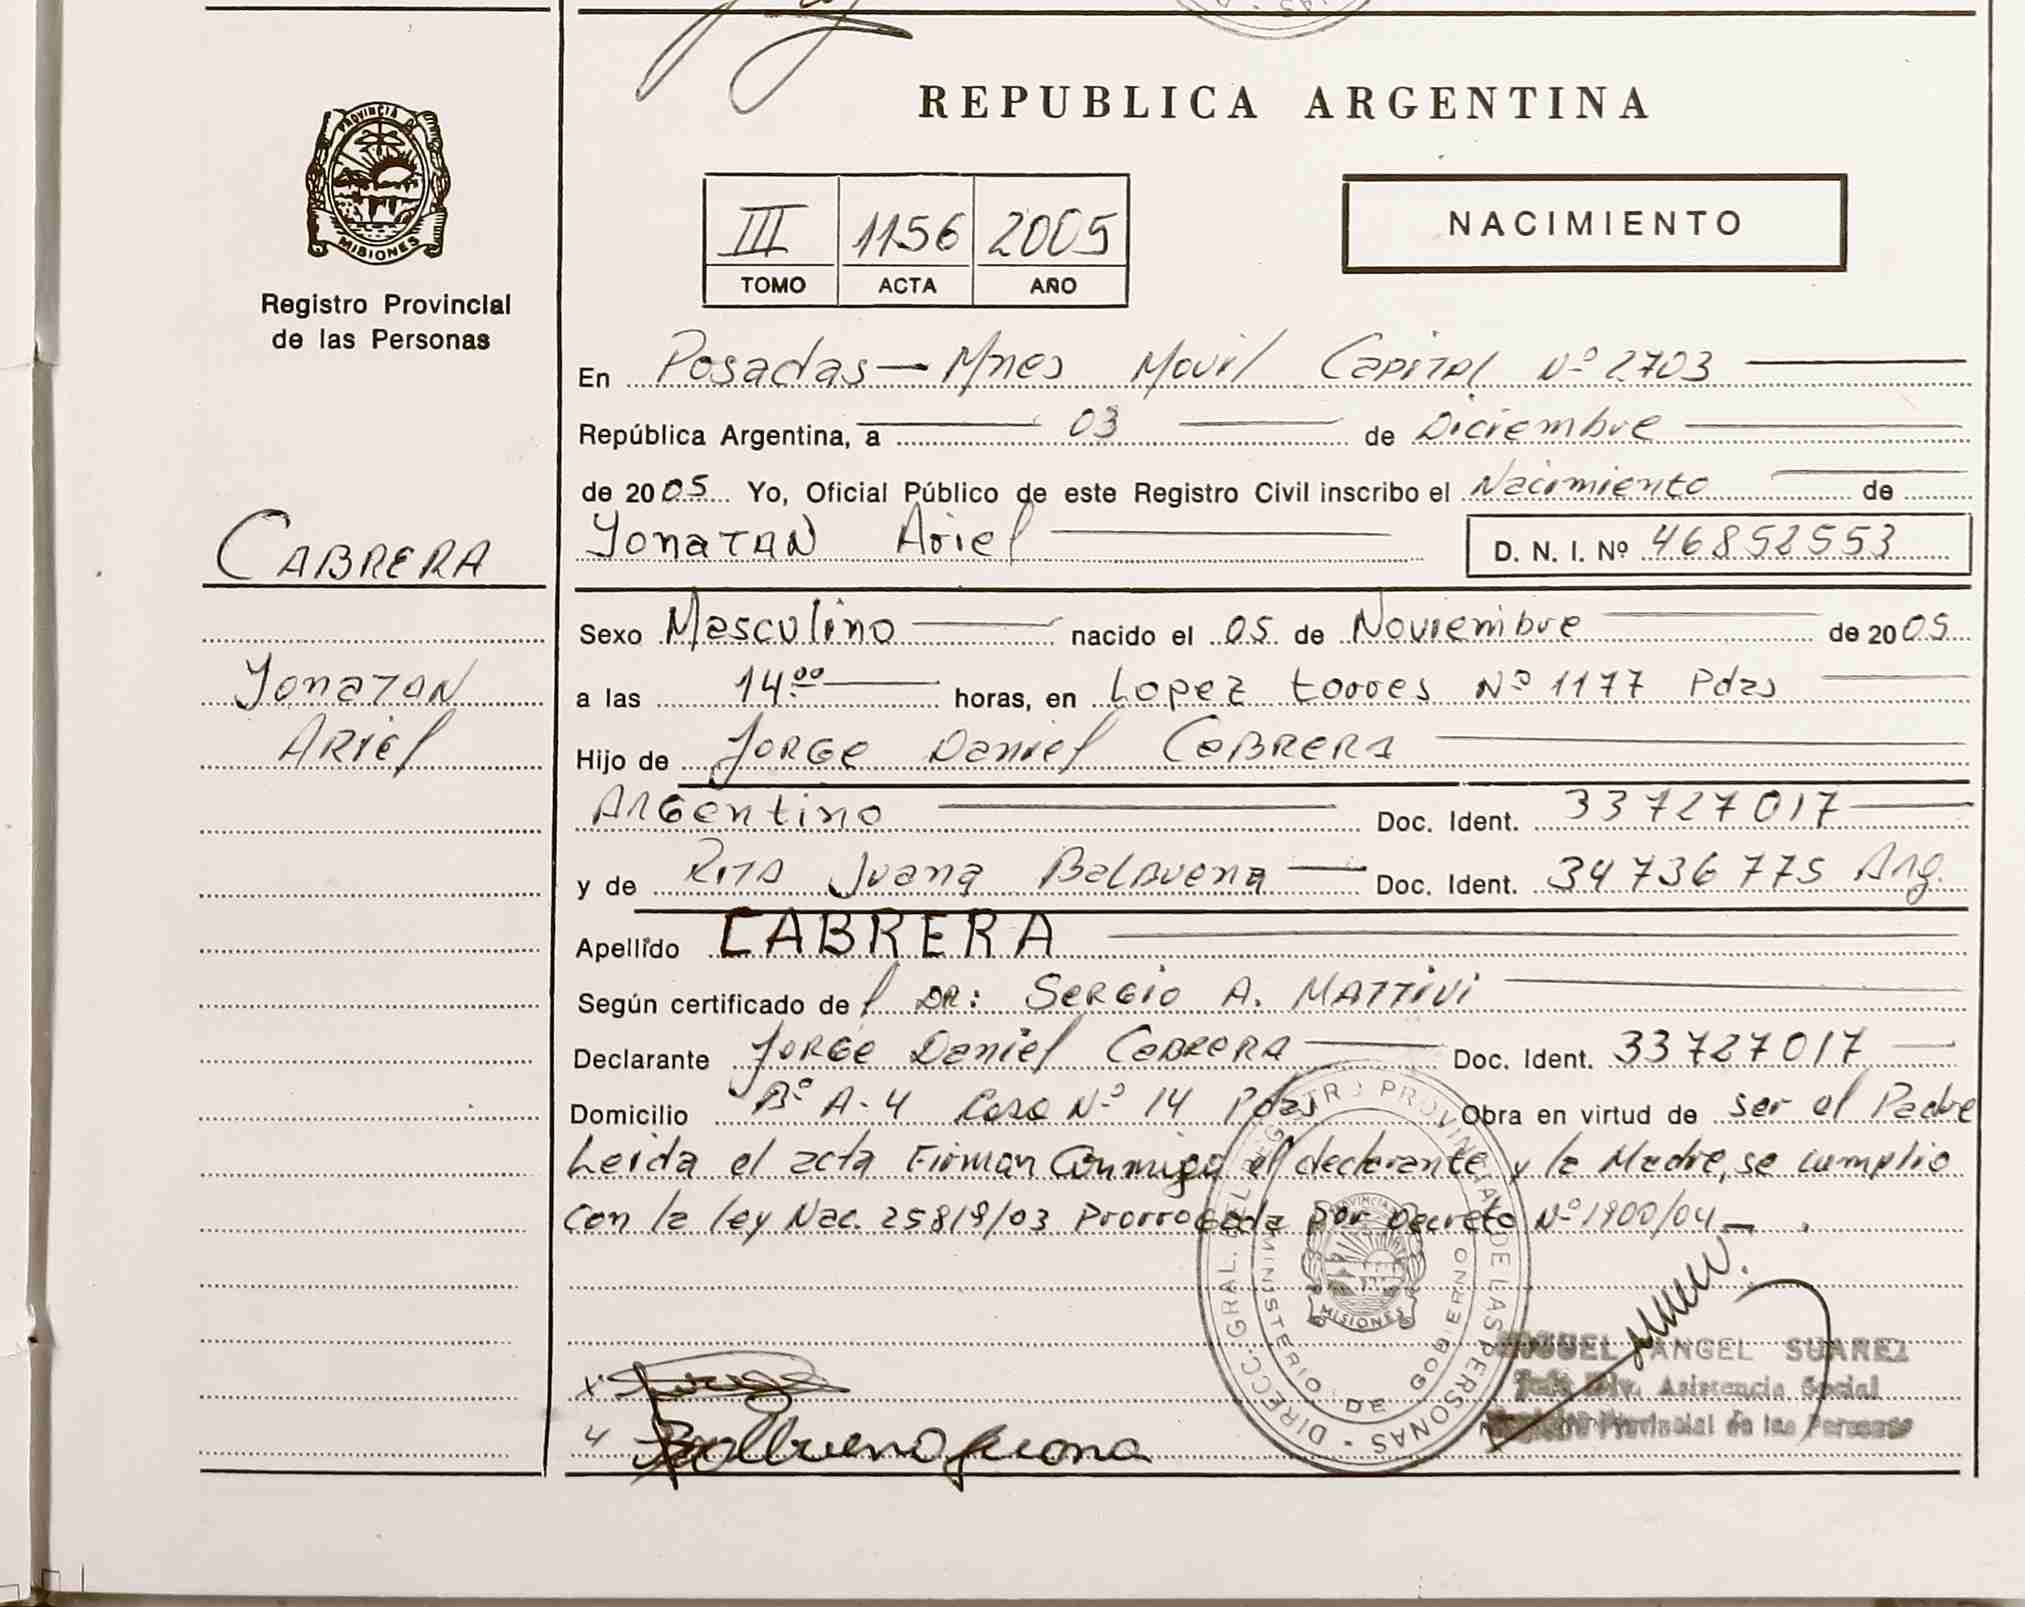 PROVINCIA DE
MISIONES
Registro Provincial
de las Personas
CABRERA
Yonatan
Ariel
REPUBLICA ARGENTINA
III 1156 2005
TOMO ACTA AÑO
NACIMIENTO
En Posadas - Mnes Movil Capital Nº 2703
República Argentina, a 03 de Diciembre
de 2005 Yo, Oficial Público de este Registro Civil inscribo el Nacimiento de
Yonatan Ariel D. N. I. Nº 46852553
Sexo Masculino nacido el 05 de Noviembre de 2005
a las 14.00 horas, en Lopez torres Nº 1177 Pdas
Hijo de Jorge Daniel CABRERA
Argentino Doc. Ident. 33727017
y de Rita Juana Balbuena Doc. Ident. 34736775 Arg.
Apellido CABRERA
Según certificado de DR: Sergio A. Mattivi
Declarante Jorge Daniel Cabrera Doc. Ident. 33727017
Domicilio Bº A-4 Casa Nº 14 Pdas Obra en virtud de ser el Padre
Leida el acta Firman Conmigo el declarante y la Madre, se cumplio
con la ley Nac. 25819/03 Prorrogada por Decreto Nº 1900/04
DIRECC. GRAL. DEL REGISTRO PROVINCIAL DE LAS PERSONAS
MINISTERIO DE GOBIERNO
PROVINCIA
MISIONES
MIGUEL ANGEL SUAREZ
Jefe Div. Asistencia Social
Registro Provincial de las Personas
Balbuena Juana